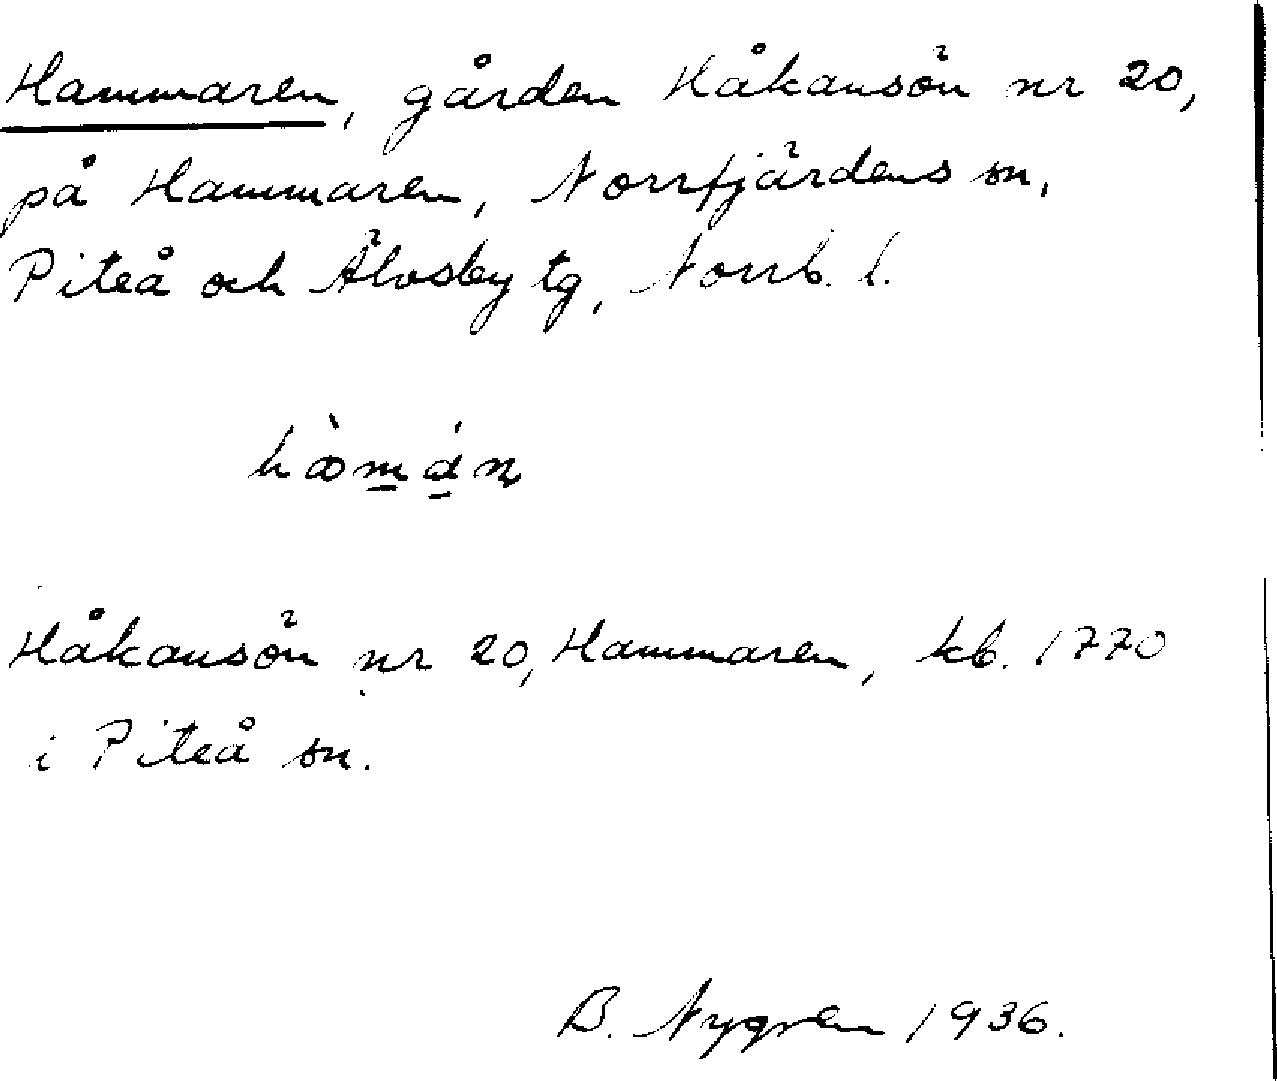 Hammaren, gården Håkansön nr 20,
på Hammaren, Norrfjärdens sn,
Piteå och Älvsby tg, Norrb. l.
Håkansön nr 20, Hammaren, kb. 1770
i Piteå sn.
B. Nygren 1936.